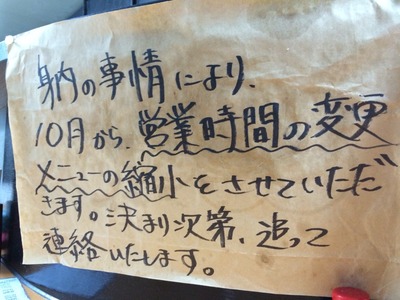 身内の事情により、
10月から、営業時間の変更
メニューの縮小をさせていただ
きます。決まり次第、追って
連絡いたします。